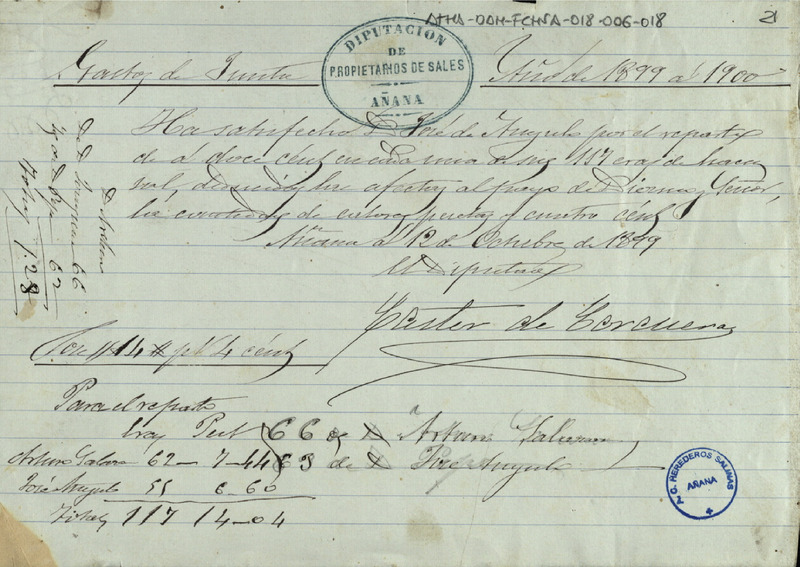 ATHA-DAH-FCHSA-018-006-018
21
DIPUTACION
DE
PROPIETARIOS DE SALES
AÑANA
Gastos de Junta
Año de 1899 á 1900
Ha satisfecho D. José de Angulo por el reparto
de á doce cént en cada una de sus 117 eras de hacer
sal, afectas al pago de Diezma y Señor,
la cantidad de catorce pesetas y cuatro cént
Añana á 12 de Octubre de 1899
El Diputado
Castor de Corcuera
Son 14 pts 4 cént
Para el reparto
hay Pert 66 de D. Arturo
Arturo 62 - 7-44 63 de D. José Angulo
José Angulo 55 6-60
Total 117 14-04
D. Arturo
66
62
Total 128
J. G. HEREDEROS SALINAS
AÑANA